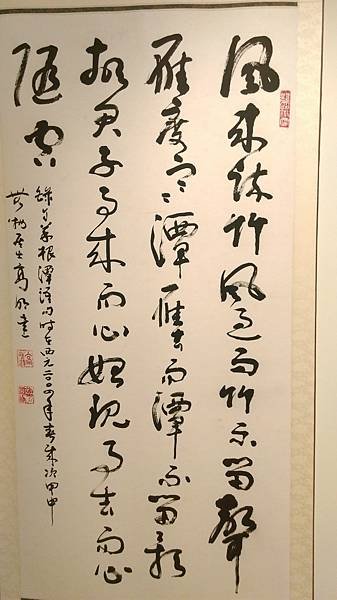 風來疎竹風過而竹不留聲
雁度寒潭雁去而潭不留影
故君子事來而心始現事去而心
隨空
錄自菜根譚語句時在西元二〇〇四年春歲次甲申
居士